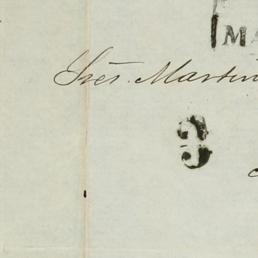 MA
Sres. Martin
3